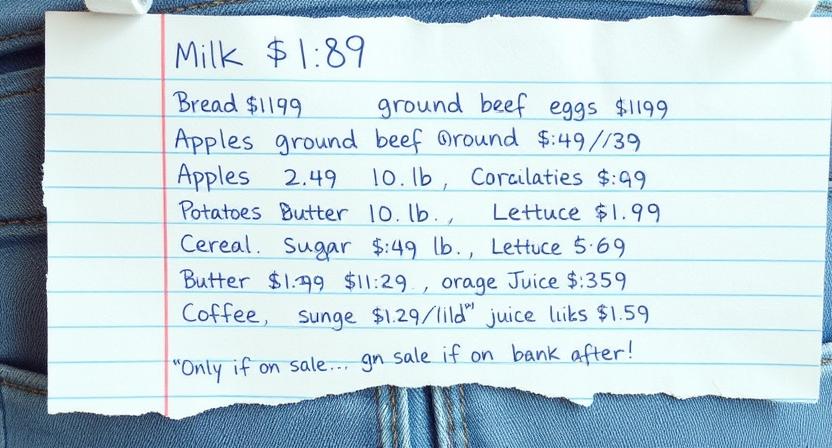 Milk $1:89
Bread $1199 ground beef eggs $1199
Apples ground beef Oround $:49//39
Apples 2.49 10. lb, Corcilaties $:99
Potatoes Butter 10. lb., Lettuce $1.99
Cereal. Sugar $:49 lb., Lettuce 5.69
Butter $11:29, orage Juice $:359
Coffee, sunge juice liiks $1.59
"Only if on sale... gn sale if on bank after!